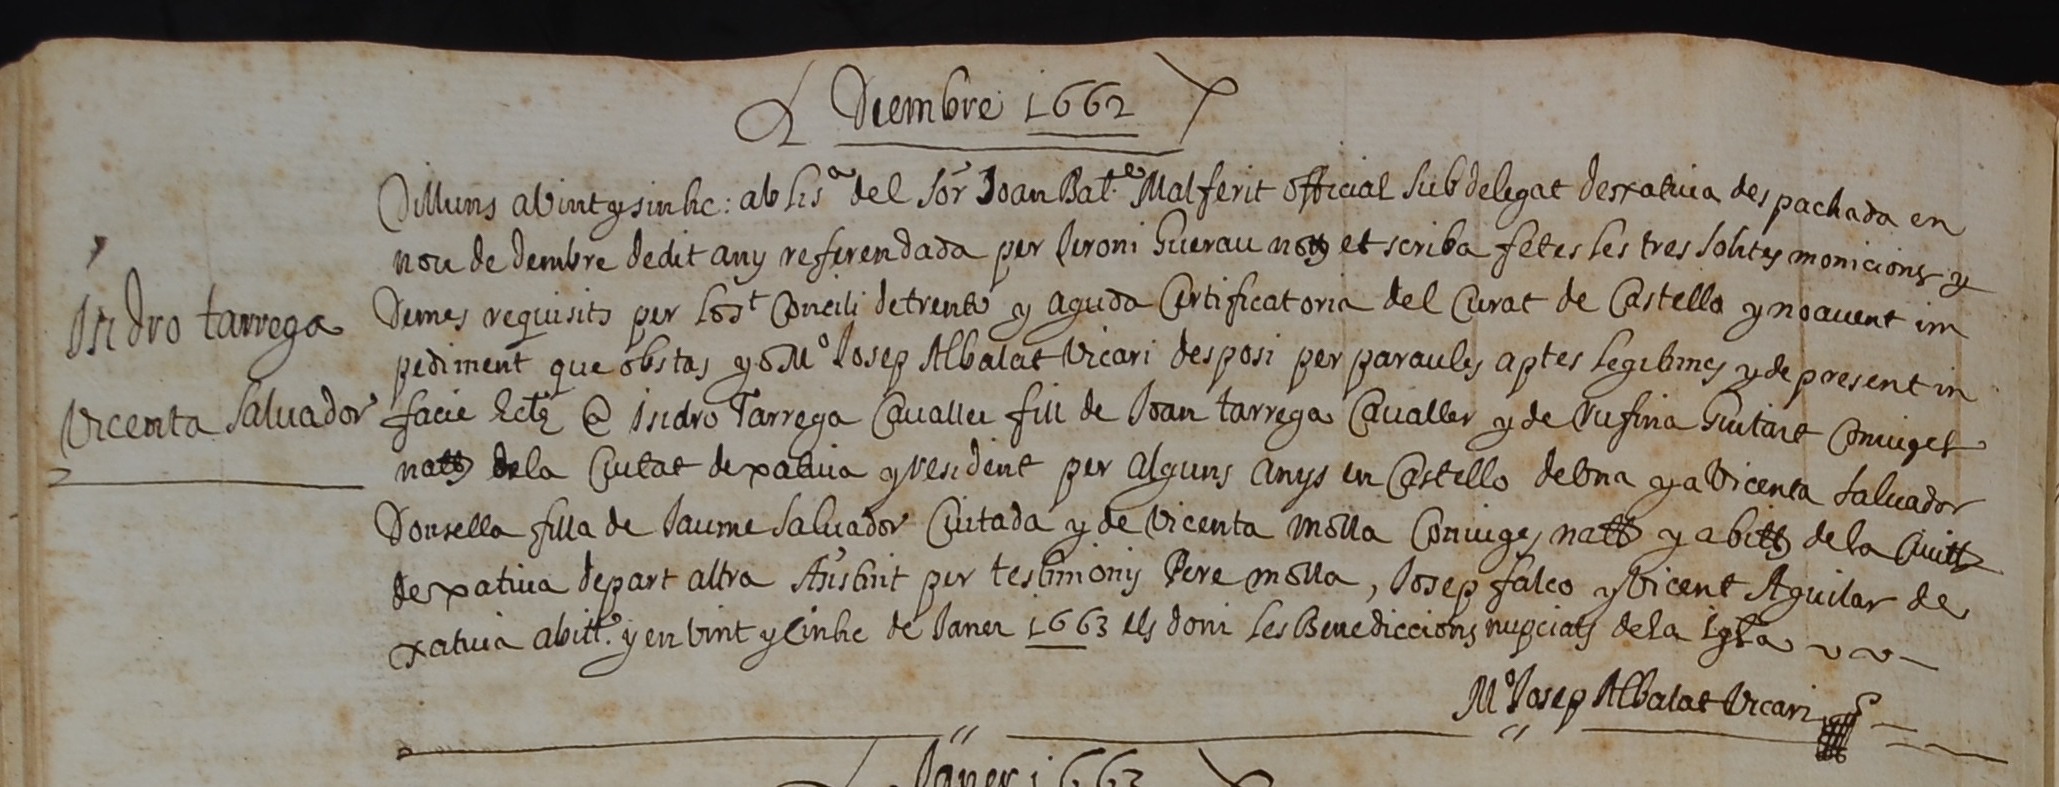 Diembre 1662
Isidro tarrega
Vicenta Saluador
Dilluns a vint y sinhc: ab llisª del Sor Joan Bat.e Malferit official subdelegat desxatiua despachada en
nou de dembre dedit any referendada per Jeroni Guerau nott et scriba fetes les tres solites monicions y
Demes requisits per lo St Concili detrento y aguda Certificatoria del Curat de Castello y no auent im
pediment que obstas yo Mº Josep Albalat Vicari desposi per paraules aptes legitimes y de present in
facie Ecle @ Isidro Tarrega Cauallei fill de Joan tarrega Caualler y de Rufina Guitart Coniuges
natt dela Ciutat dexatiua y resident per alguns anys en Castello de una y a Vicenta Saluador
Donsella filla de Jaume Saluador Ciutada y de Vicenta Molla Coniuges natt y abitt dela Ciutt
desxatiua de part altra Asistint per testimonis Pere molla, Josep falco y Vicent Aguilar de
xatiua abitt.s y en vint y Cinhc de Janer 1663 els doni les Benediccions nupcials dela Igla
Mº Josep Albalat Vicari
Janer 1663